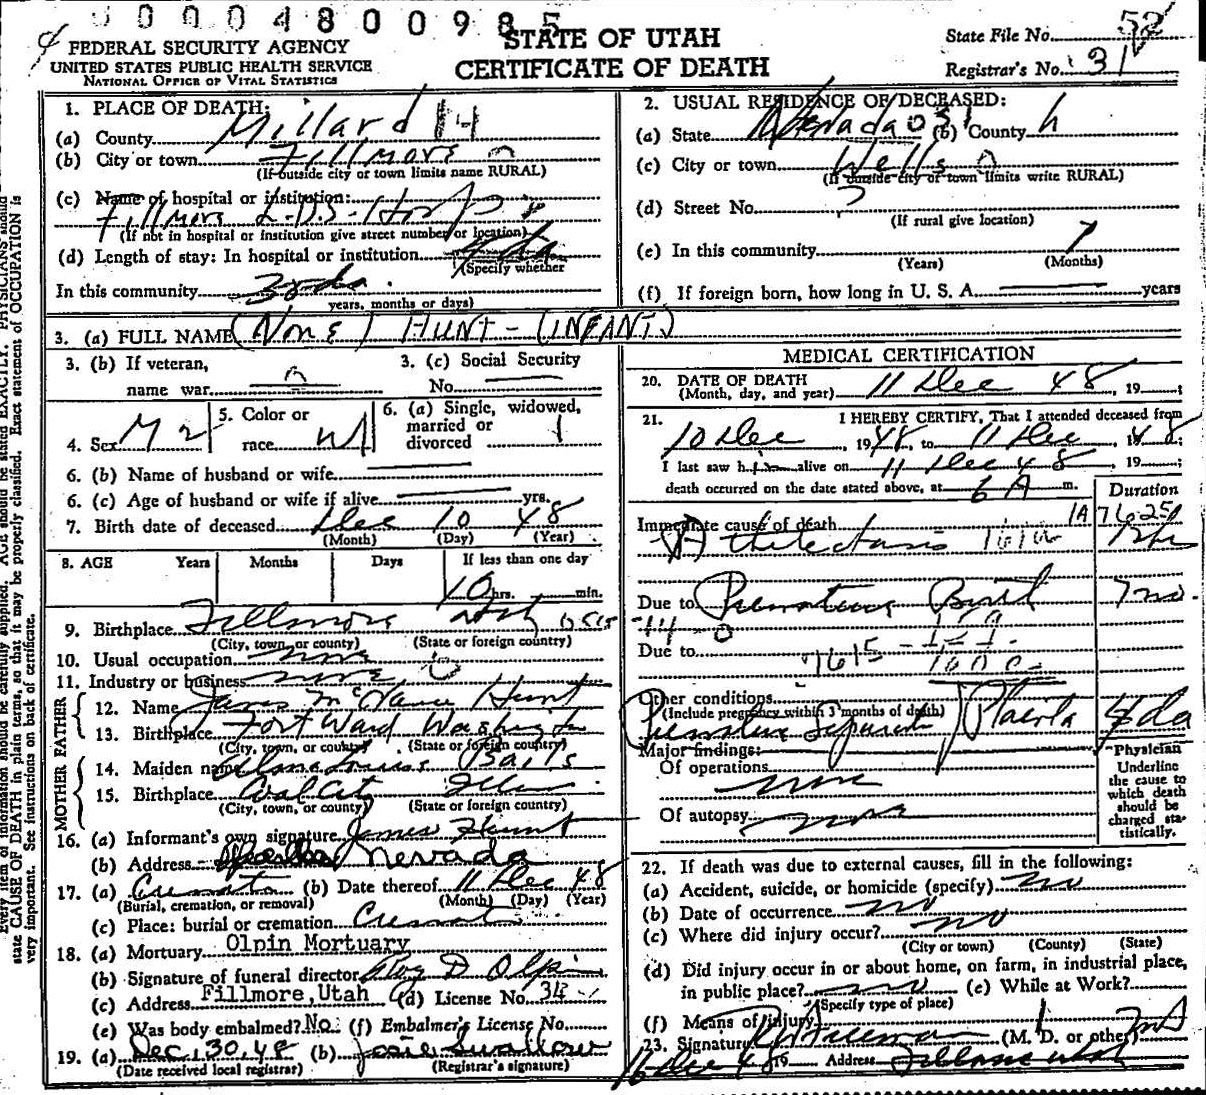 00004800985
STATE OF UTAH
CERTIFICATE OF DEATH
FEDERAL SECURITY AGENCY
UNITED STATES PUBLIC HEALTH SERVICE
NATIONAL OFFICE OF VITAL STATISTICS
State File No. 52
Registrar's No. 31
1. PLACE OF DEATH:
(a) County Millard
(b) City or town Fillmore
(If outside city or town limits name RURAL)
(c) Name of hospital or institution:
Fillmore L.D.S. Hosp
(If not in hospital or institution give street number or location)
(d) Length of stay: In hospital or institution
(Specify whether
In this community
years, months or days)
2. USUAL RESIDENCE OF DECEASED:
(a) State Nevada (b) County
(c) City or town Wells
(If outside city or town limits write RURAL)
(d) Street No. ?
(If rural give location)
(e) In this community
(Years) (Months)
(f) If foreign born, how long in U. S. A. years
3. (a) FULL NAME (None) HUNT - (INFANT)
3. (b) If veteran,
name war
3. (c) Social Security
No.
4. Sex M 2
5. Color or
race W
6. (a) Single, widowed,
married or
divorced
6. (b) Name of husband or wife
6. (c) Age of husband or wife if alive yrs.
7. Birth date of deceased Dec 10 48
(Month) (Day) (Year)
8. AGE Years Months Days If less than one day
10 hrs. min.
9. Birthplace Fillmore Utah
(City, town, or county) (State or foreign country)
10. Usual occupation none
11. Industry or business none
FATHER
12. Name James Hunt
13. Birthplace Fort Ward Washington
(City, town, or county) (State or foreign country)
MOTHER
14. Maiden name
15. Birthplace Coal City Illinois
(City, town, or county) (State or foreign country)
16. (a) Informant's own signature James Hunt
(b) Address Nevada
17. (a) Cremation (b) Date thereof 11 Dec 48
(Burial, cremation, or removal) (Month) (Day) (Year)
(c) Place: burial or cremation
18. (a) Mortuary Olpin Mortuary
(b) Signature of funeral director Roy D Olpin
(c) Address Fillmore, Utah (d) License No. 34
(e) Was body embalmed? No (f) Embalmer's License No.
19. (a) Dec. 30, 48 (b) Josie Swallow
(Date received local registrar) (Registrar's signature)
MEDICAL CERTIFICATION
20. DATE OF DEATH
(Month, day, and year) 11 Dec 48, 19
21. I HEREBY CERTIFY, That I attended deceased from
10 Dec, 1948, to 11 Dec, 1948;
I last saw h alive on 11 Dec 48, 19 ;
death occurred on the date stated above, at 6 A m.
Duration
Immediate cause of death
Atelectasis
Due to Premature Birth 7 mo.
Due to
Other conditions
(Include pregnancy within 3 months of death)
Premature Separat Placenta 4 da
Major findings:
Of operations
none
Of autopsy none
"Physician
Underline
the cause to
which death
should be
charged sta-
tistically.
22. If death was due to external causes, fill in the following:
(a) Accident, suicide, or homicide (specify) no
(b) Date of occurrence no
(c) Where did injury occur? no
(City or town) (County) (State)
(d) Did injury occur in or about home, on farm, in industrial place,
in public place? no (e) While at Work?
(Specify type of place)
(f) Means of injury
23. Signature (M. D. or other) MD
16 Dec 48 19 Address Fillmore Utah
Every item of information should be carefully supplied. AGE should be stated EXACTLY. PHYSICIANS should
state CAUSE OF DEATH in plain terms, so that it may be properly classified. Exact statement of OCCUPATION is
very important. See instructions on back of certificate.